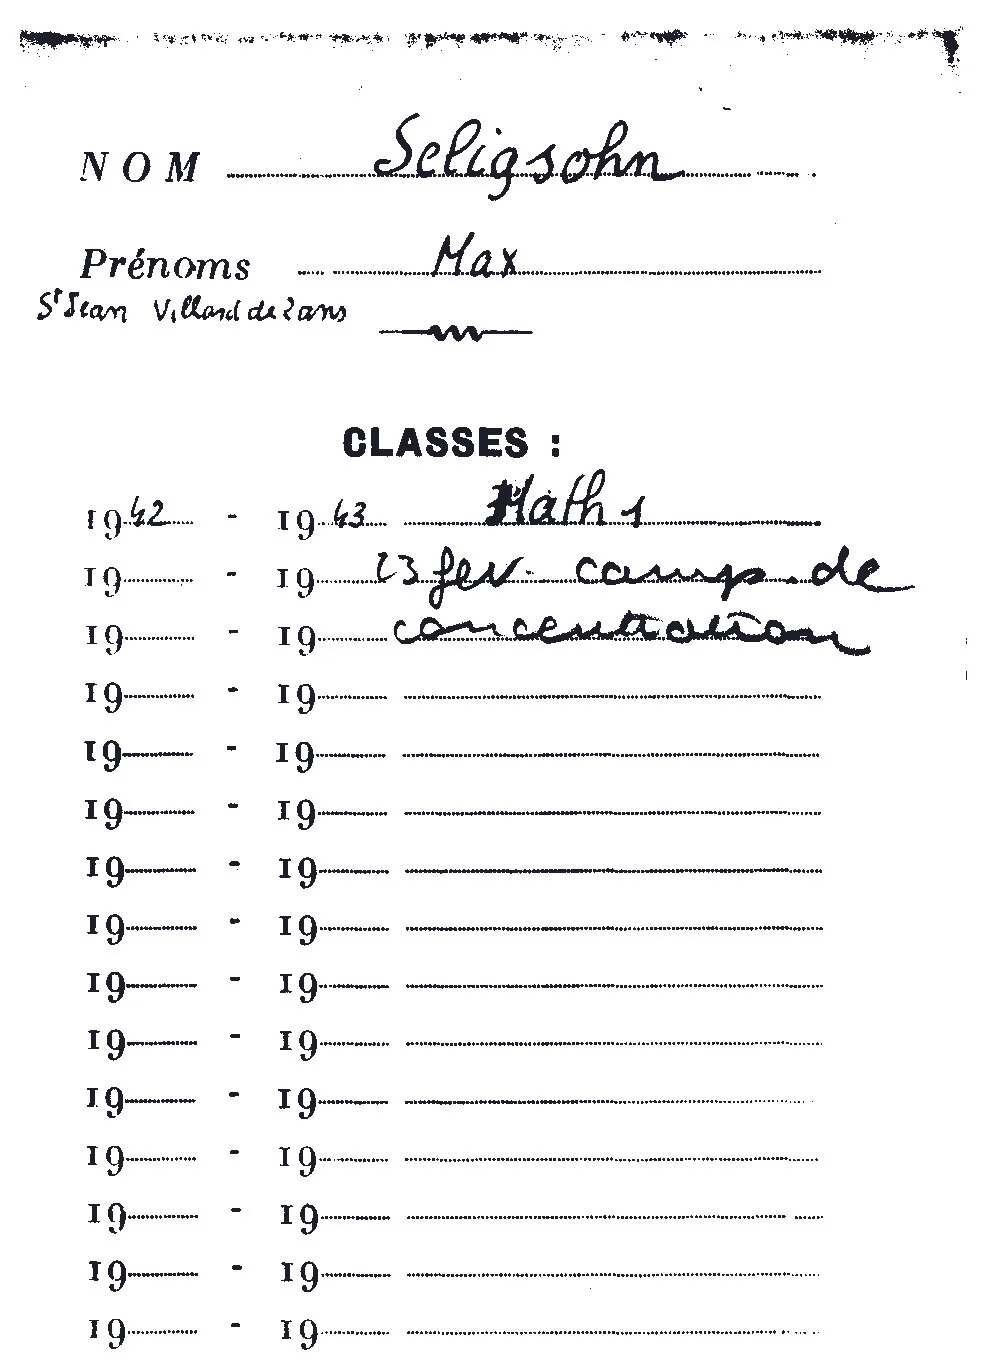 NOM Seligsohn
Prénoms Max
St Jean Villard de Lans
CLASSES :
1942 - 1943 Math 1
19 - 19 23 fev. camp. de
19 - 19 concentration
19 - 19
19 - 19
19 - 19
19 - 19
19 - 19
19 - 19
19 - 19
19 - 19
19 - 19
19 - 19
19 - 19
19 - 19